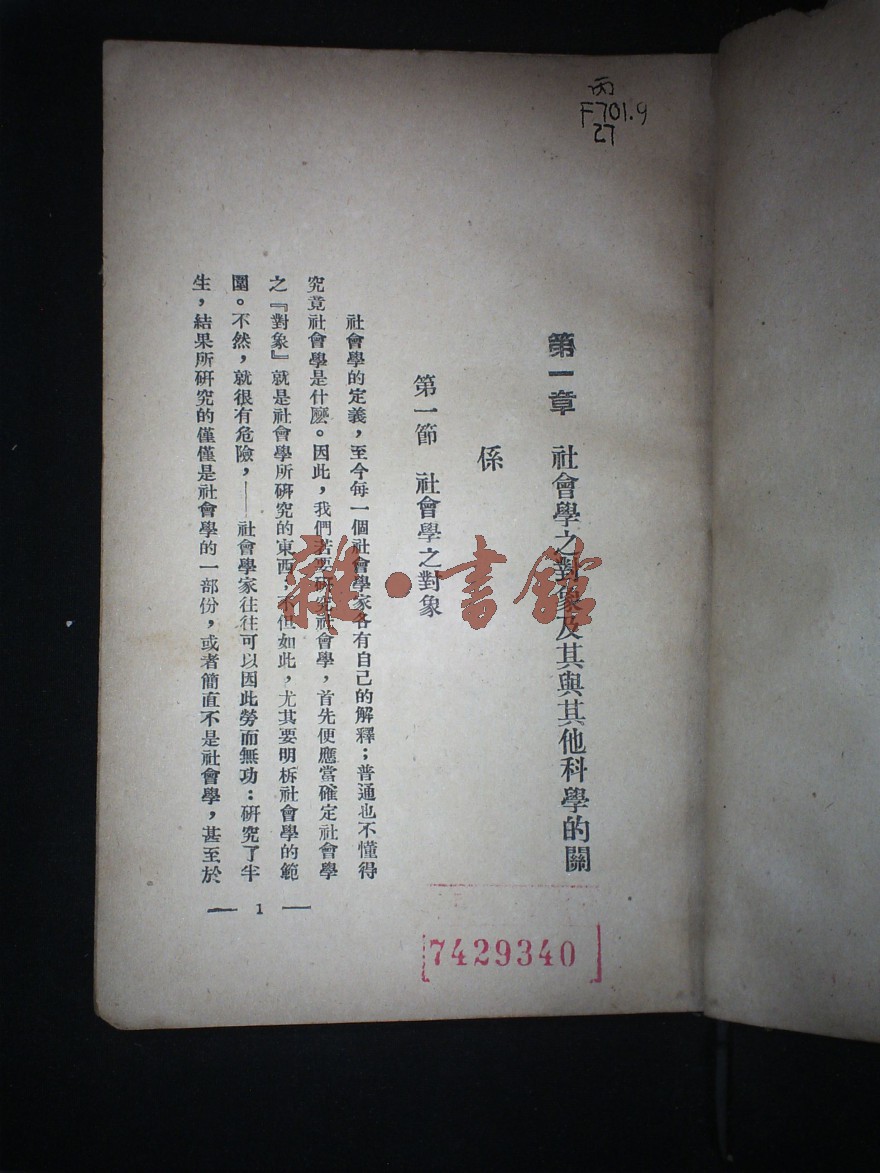 丙
F701.9
27
第一章　社會學之對象及其與其他科學的關
係
第一節　社會學之對象
社會學的定義，至今每一個社會學家各有自己的解釋；普通也不懂得
究竟社會學是什麼。因此，我們若要研究社會學，首先便應當確定社會學
之『對象』就是社會學所研究的東西，不但如此，尤其要明柝社會學的範
圍。不然，就很有危險，——社會學家往往可以因此勞而無功：研究了半
生，結果所研究的僅僅是社會學的一部份，或者簡直不是社會學，甚至於
— 1 —
7429340
雜·書館